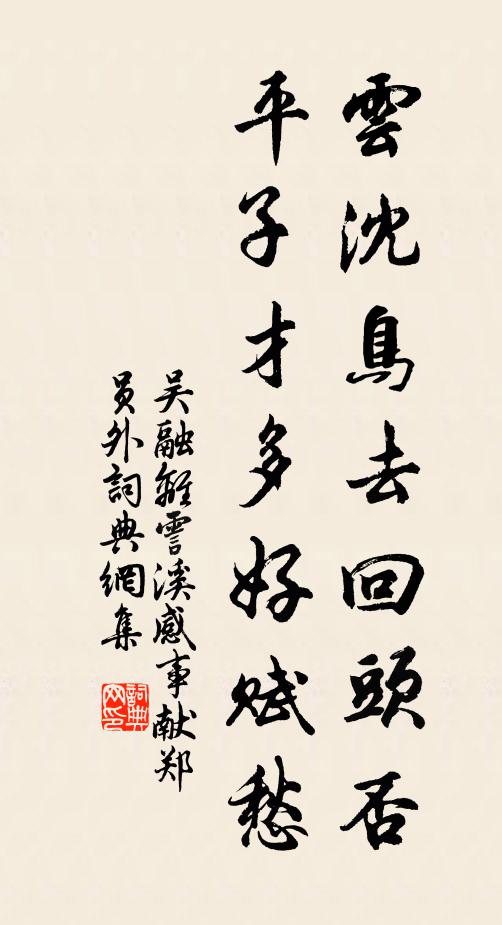 雲沈鳥去回頭否
平子才多好賦愁
吴融離霅溪感事献郑
員外詞典網集
詞典
网印